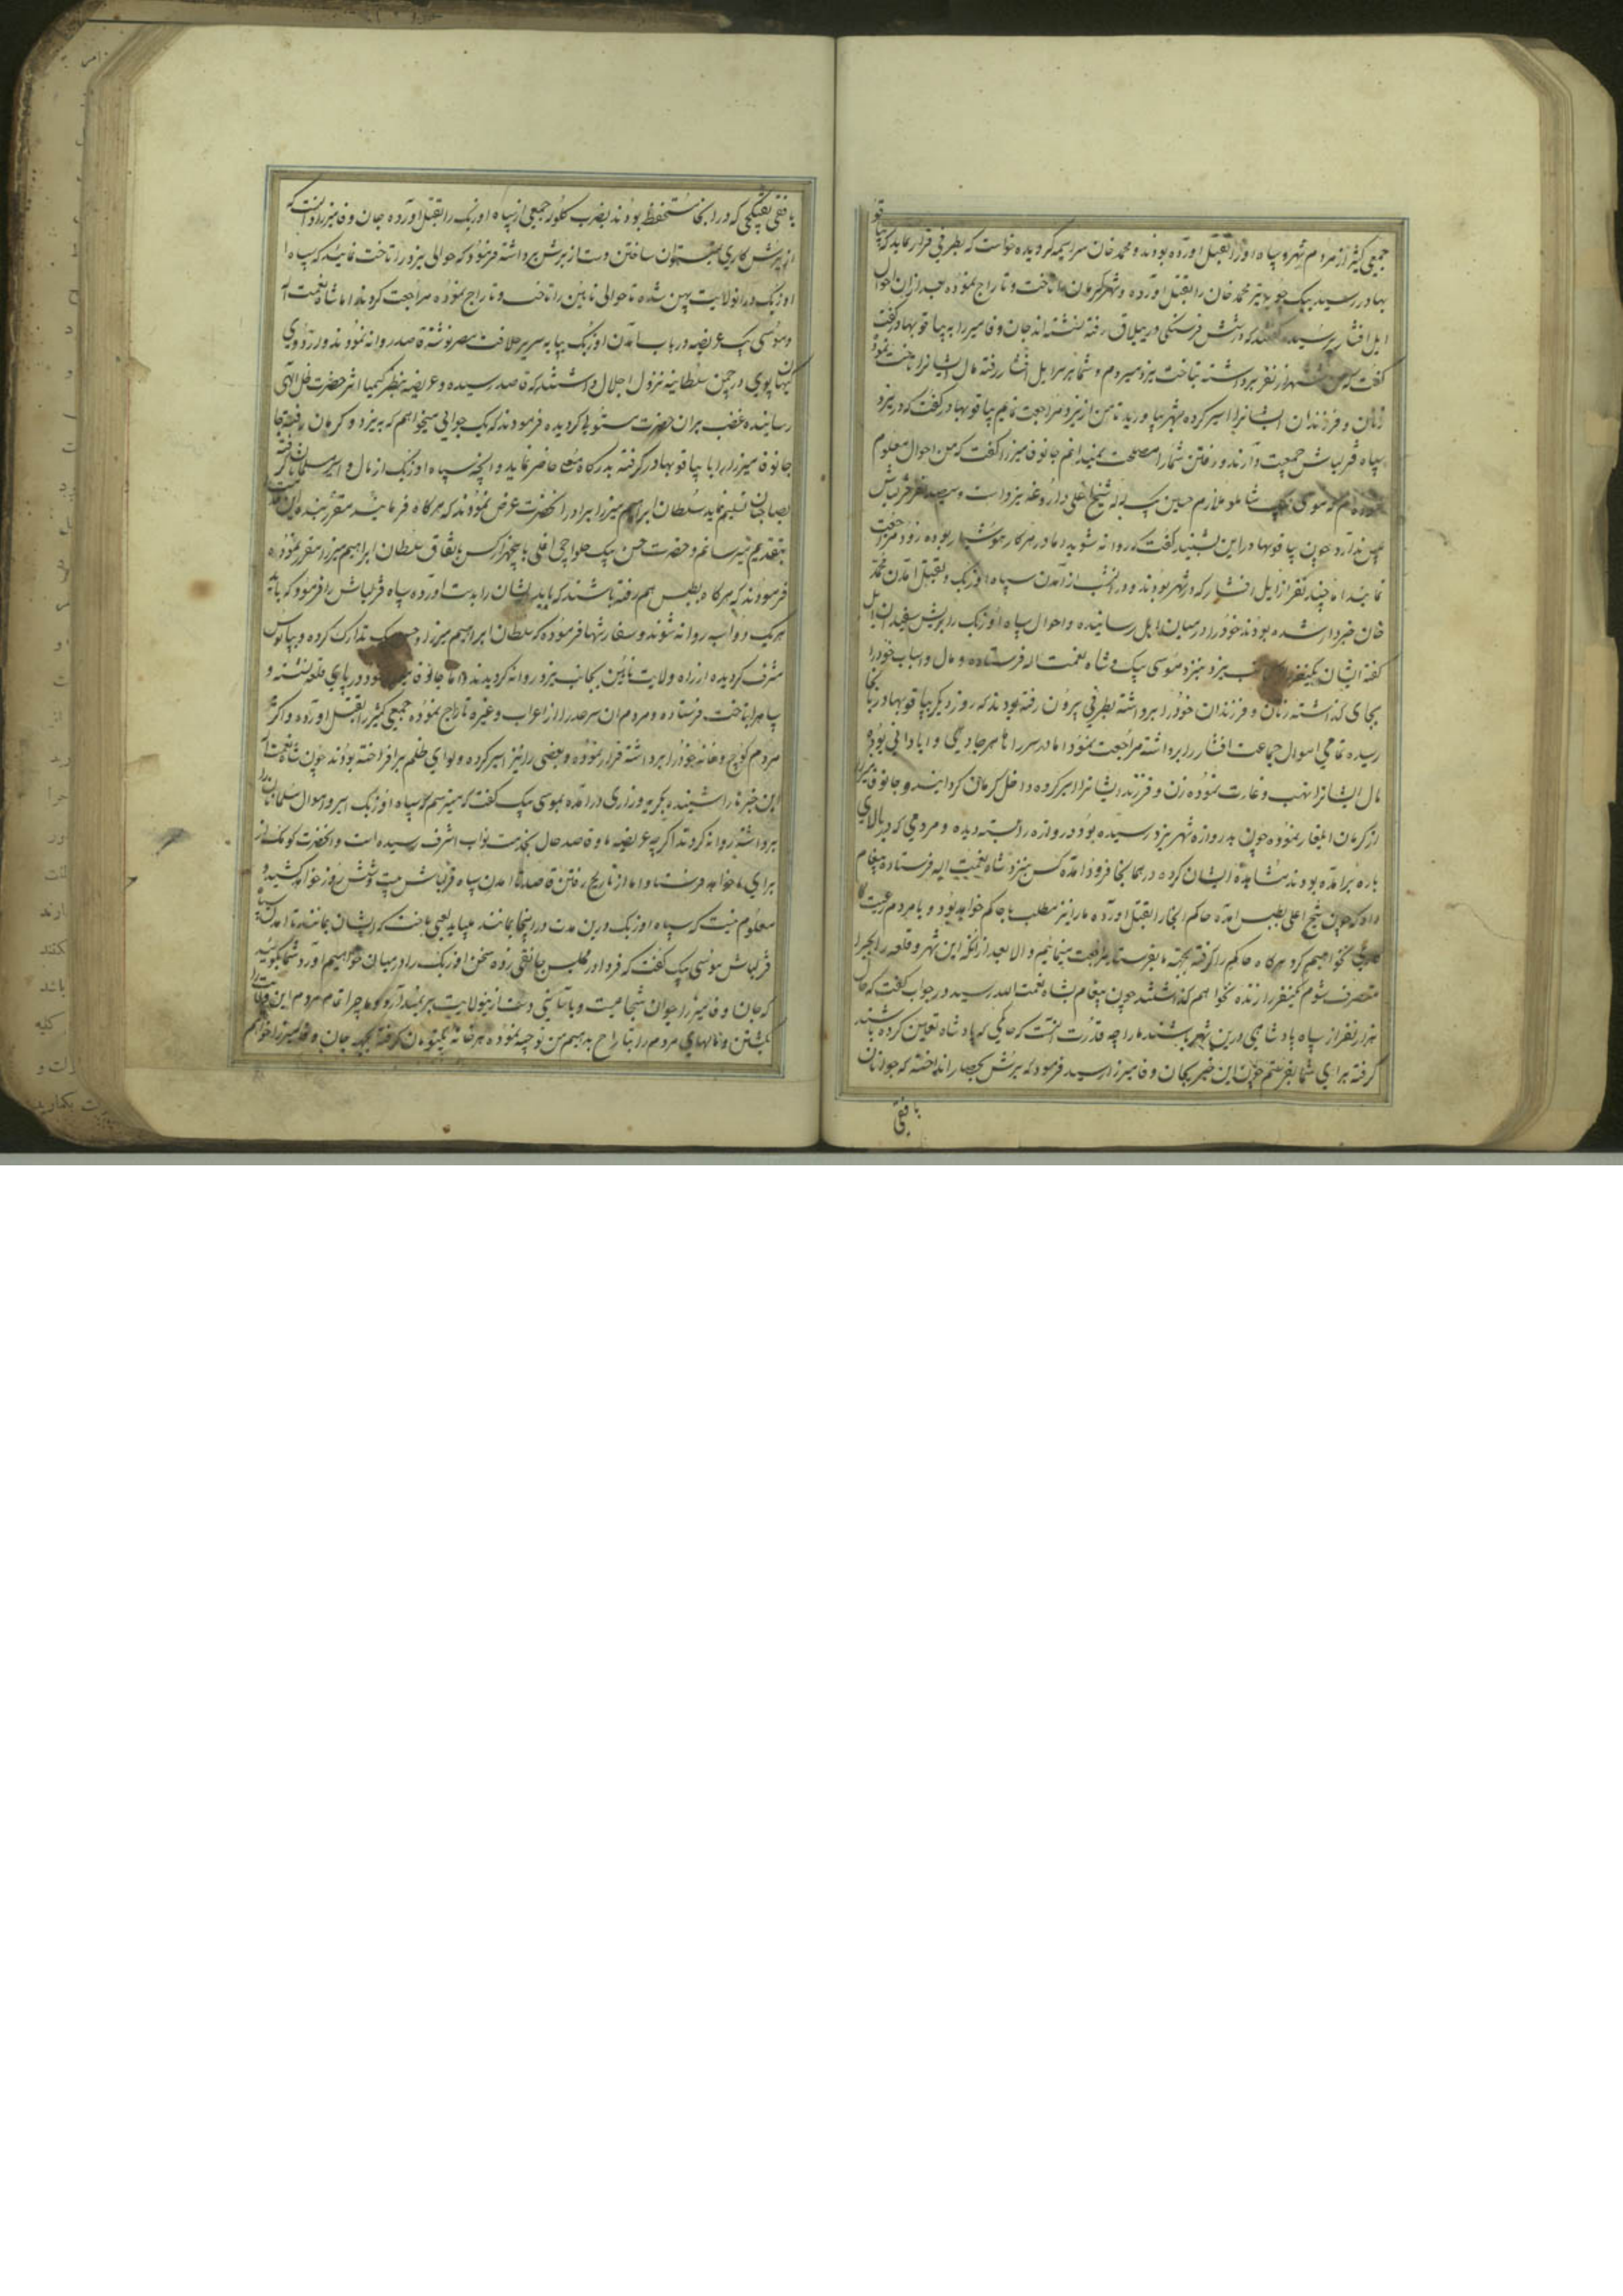 جمعی کثیر از مردم شهر و سپاه اوزبک بقتل اورده بودند و محمد خان سراسیمه گردیده خواست که بطرفی فرار نماید که پیاقو
بهادر رسید بیک چوبه تیر محمد خان را بقتل اورده و شهر کرمان را تاخت و تاراج نموده بعد از ان احوال
ایل افشار پرسید گفتند که در شش فرسنگی در ییلاق رفته نشسته اند جان وفا میرزا به پیاقو بهادر گفت
گفت که من هزار نفر برداشته بتاخت یزد میروم و شما بر سر ایل افشار رفته مال ایشانرا تاخت نموده
زنان و فرزندان ایشانرا اسیر کرده بشهر بیاورید تا من از یزد مراجعت نمایم پیاقو بهادر گفت که در یزد
سپاه قزلباش جمعیت دارند و رفتن شما را مصلحت نمیدانم جانوفا میرزا گفت که من احوال معلوم
کرده ام که موسی بیک شاملو ملازم حسین بیک لله شیخ اغلی داروغه یزد است و سیصد نفر قزلباش
بیش ندارد چون پیاقو بهادر این بشنید گفت که روانه شوید اما در هر کار هوشیار بوده زود مراجعت
نمائید اما چند نفر از ایل افشار که در شهر بودند و در انشب از آمدن سپاه اوزبک و بقتل آمدن محمد
خان خبردار شده بودند خود را در میان ایل رسانیده و احوال سپاه اوزبک را بریش سفیدان ایل
گفته ایشان یکنفر را بجانب یزد بنزد موسی بیک و شاه نعمت اله فرستاده و مال و اسباب خود را
بجای گذاشته زنان و فرزندان خود را برداشته بطرفی بیرون رفته بودند که روز دیگر پیاقو بهادر بانجا
رسیده تمامی اموال جماعت افشار را برداشته مراجعت نمود اما در سر راه هر جا دیهی و ابادانی بوده
مال ایشانرا نهب و غارت نموده زن و فرزند ایشانرا اسیر کرده داخل کرمان گردانید و جانوفا میرزا
از کرمان ایلغار نموده چون بدروازه شهر یزد رسیده بود دروازه را بسته دیده و مردمی که در بالای
باره برامده بودند مشاهده ایشان کرده در همانجا فرود امده کس بنزد شاه نعمت اله فرستاده پیغام
داد که چون شیخ اغلی بطبس امده حاکم انجا را بقتل اورده ما را نیز مطلب با حاکم خواهد بود و با مردم رعیت کار
نخواهیم کرد هرگاه حاکم را گرفته بجهة ما بفرستید مراجعت مینمائیم و الا بعد از انکه این شهر و قلعه را بجبر
متصرف شوم یکنفر را زنده نخواهم گذاشت چون پیغام بشاه نعمت الله رسید در جواب گفت که حال
هزار نفر از سپاه پادشاهی درین شهر باشند ما را چه قدرت انست که حاکمی که پادشاه تعیین کرده باشند
گرفته برای شما بفرستم چون این خبر بجان وفا میرزا رسید فرمود که یرش بحصار انداخته که جوانان
بافقی
بافقی تفنگچی که در انجا مستحفظ بودند بضرب گلوله جمعی از سپاه اوزبک را بقتل اورده جان وفا میرزا دانست که
از یرش کاری نمیتوان ساختن دست از یرش برداشته فرمود که حوالی یزد را تاخت نمائید که سپاه
اوزبک در انولایت پهن شده تا حوالی نایین را تاخت و تاراج نموده مراجعت کردند اما شاه نعمت اله
و موسی بیک عریضه در باب آمدن اوزبک بپایه سریر خلافت مصیر نوشته قاصد روانه نمودند و در اردوی
کیهان پوی در چمن سلطانیه نزول اجلال داشتند که قاصد رسیده و عریضه بنظر کیمیا اثر حضرت ظل الهی
رسانیده غضب بران حضرت مستولی گردیده فرمودند که یک جوانی میخواهم که به یزد و کرمان رفته
جانوفا میرزا را با پیاقو بهادر گرفته بدرگاه معلی حاضر نماید و انچه سپاه اوزبک از مال و اسیر مسلمانان گرفته
بصاحبان تسلیم نماید سلطان ابراهیم میرزا برادر انحضرت عرض نمودند که هرگاه فرمایند مقرر بنده این خدمت
بتقدیم میرسانم و حضرت حسن بیک حلواچی اغلی با پنجهزار کس باتفاق سلطان ابراهیم میرزا مقرر نموده
فرمودند که هرگاه بطبس هم رفته باشند که باید ایشان را بدست اورده سپاه قزلباش را فرمود که
هر یک دو اب روانه شوند و سفارشها فرموده که سلطان ابراهیم میرزا و حسن بیک تدارک کرده و بپابوس
مشرف گردیده از راه ولایت نایین بجانب یزد روانه گردیدند اما جانوفا میرزا خود در پای قلعه نشسته و
سپاه را بتاخت فرستاده و مردم ان سرحد را از اعراب و غیره تاراج نموده جمعی کثیر را بقتل اورده و اکثر
مردم کوچ و خانه خود را برداشته فرار نموده و بعضی را نیز اسیر کرده و لوای ظلم برافراخته بودند چون شاه نعمت اله
این خبرها را شنیده بگریه و زاری درامده بموسی بیک گفت که میترسم که سپاه اوزبک اسیر و اموال مسلمانان را
برداشته روانه کردند اگرچه عریضه ما و قاصد حال بخدمت نواب اشرف رسیده است و انحضرت کومک از
برای ما خواهد فرستاد اما از تاریخ رفتن قاصد تا امدن سپاه قزلباش بیست و شش روز خواهد کشید و
معلوم نیست که سپاه اوزبک درین مدت در اینجا بمانند میباید سعیی باخت که ایشان بمانند تا امدن سپاه
قزلباش موسی بیک گفت که فردا در مجلس جانقی زده سخن اوزبک را در میان خواهیم اورد شما بگوئید
که جان وفا میرزا جوان شجاعیست و باسانی دست ازینولایت بر نمیدارد و ما چرا تمام مردم این ولایت را
بکشتن و مالهای مردم را بتاراج بدهیم من توجیه نموده هر خانه یکتومان گرفته بجهة جان وفا میرزا خواهم